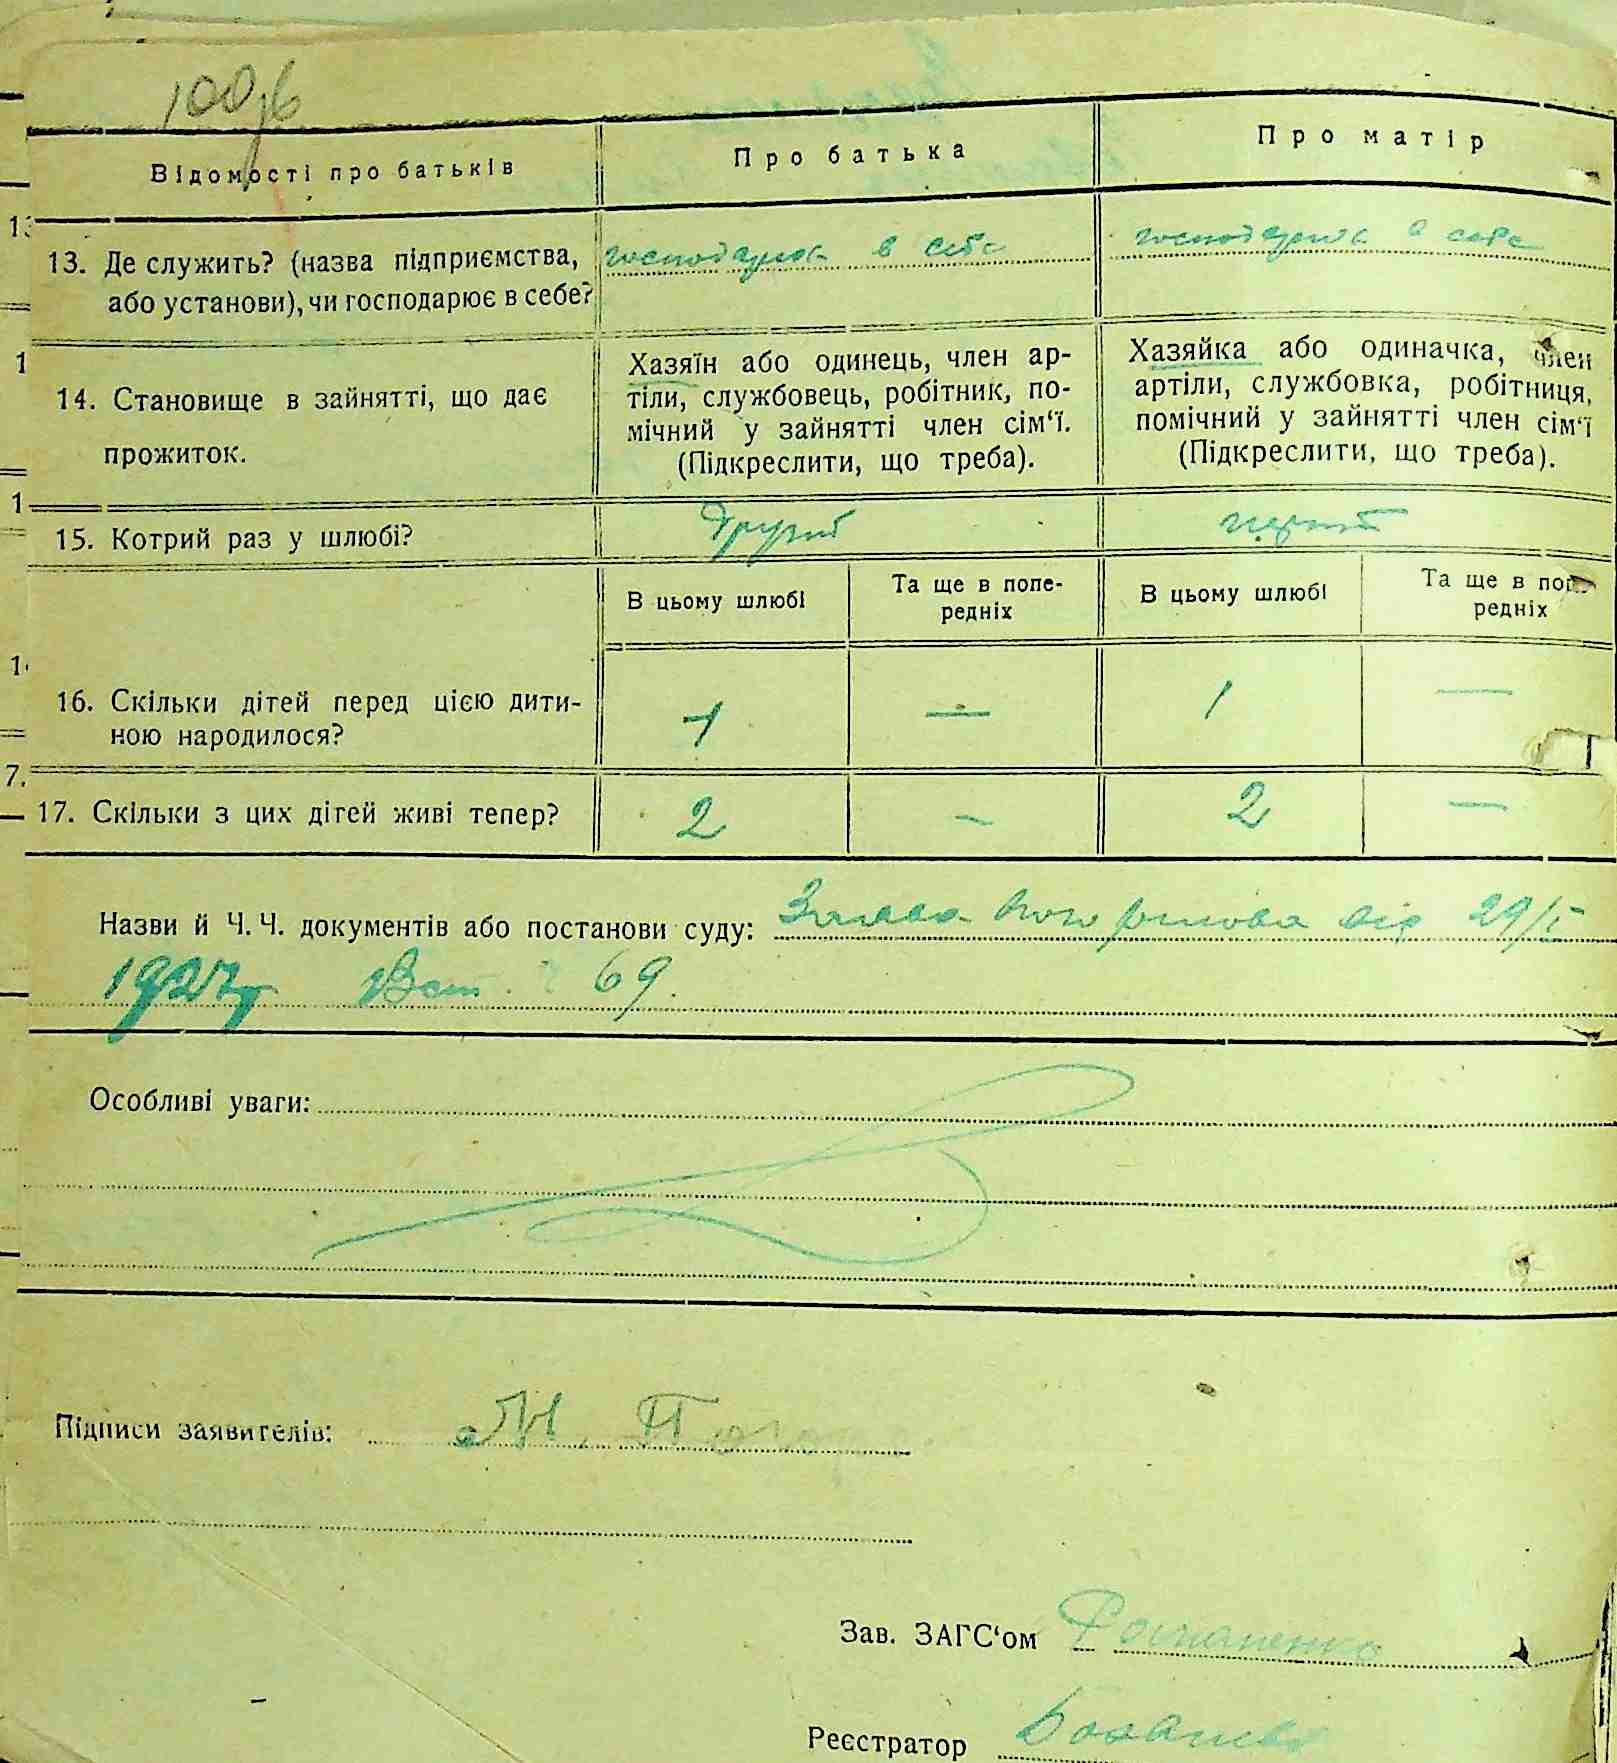 100
Відомості про батьків
Про батька
Про матір
13. Де служить? (назва підприємства,
або установи), чи господарює в себе?
господарює в себе
господарює в себе
14. Становище в зайнятті, що дає
прожиток.
Хазяїн або одинець, член ар-
тіли, службовець, робітник, по-
мічний у зайнятті член сім‘ї.
(Підкреслити, що треба).
Хазяйка або одиначка, член
артіли, службовка, робітниця,
помічний у зайнятті член сім‘ї
(Підкреслити, що треба).
15. Котрий раз у шлюбі?
другий
перший
В цьому шлюбі
Та ще в попе-
редніх
В цьому шлюбі
Та ще в попе-
редніх
16. Скільки дітей перед цією дити-
ною народилося?
1 — 1 —
17. Скільки з цих дітей живі тепер?
2 — 2 —
Назви й Ч. Ч. документів або постанови суду: Заява від 29/I
1927р 69.
Особливі уваги:
Підписи заявителів: М. П
Зав. ЗАГС‘ом
Реєстратор